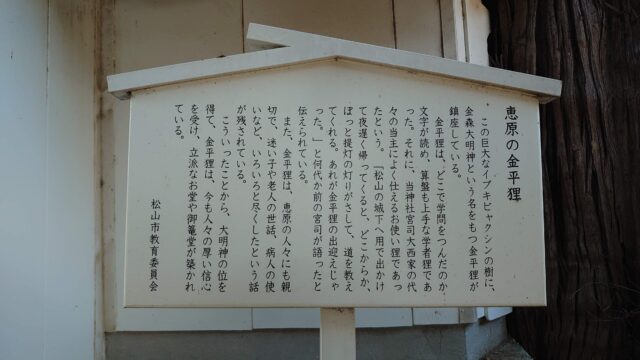 恵原の金平狸
この巨大なイブキビャクシンの樹に、
金森大明神という名をもつ金平狸が
鎮座している。
金平狸は、どこで学問をつんだのか
文字が読め、算盤も上手な学者狸であ
った。それに、当神社宮司大西家の代
々の当主によく仕えるお使い狸であっ
たという。「松山の城下へ用で出かけ
て夜遅く帰ってくると、どこからか、
ぽっと提灯の灯りがさして、道を教え
てくれる。あれが金平狸の出迎えじゃ
った。」と何代か前の宮司が語ったと
伝えられている。
また、金平狸は、恵原の人々にも親
切で、迷い子や老人の世話、病人の使
いなど、いろいろと尽くしたという話
が残されている。
こういったことから、大明神の位を
得て、金平狸は、今も人々の厚い信心
を受け、立派なお堂や御篭堂が築かれ
ている。
松山市教育委員会